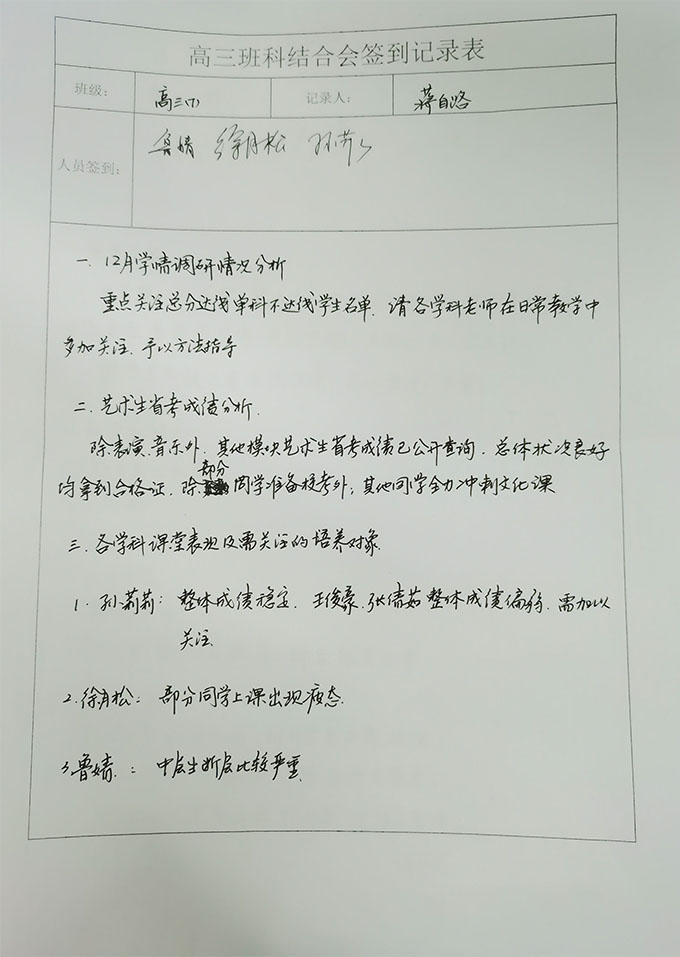 高三班科结合会签到记录表
班级： 高三(7) 记录人： 蒋自路
人员签到： 鲁婧 徐月松 孙莉莉
一. 12月学情调研情况分析
重点关注总分达线单科不达线学生名单. 请各学科老师在日常教学中
多加关注. 予以方法指导
二. 艺术生省考成绩分析.
除表演.音乐外. 其他模块艺术生省考成绩已公开查询. 总体状况良好
均拿到合格证. 除部分同学准备校考外; 其他同学全力冲刺文化课
三. 各学科课堂表现及需关注的培养对象.
1. 孙莉莉: 整体成绩稳定. 王俊豪.张倩茹整体成绩偏弱. 需加以
关注.
2.徐月松: 部分同学上课出现疲态.
3.鲁婧.: 中层生断层比较严重.